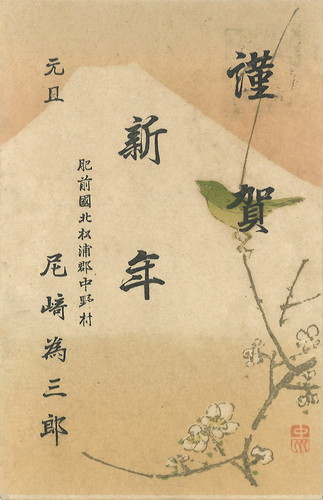 謹賀
新年
元旦
肥前國北松浦郡中野村
尼﨑為三郎